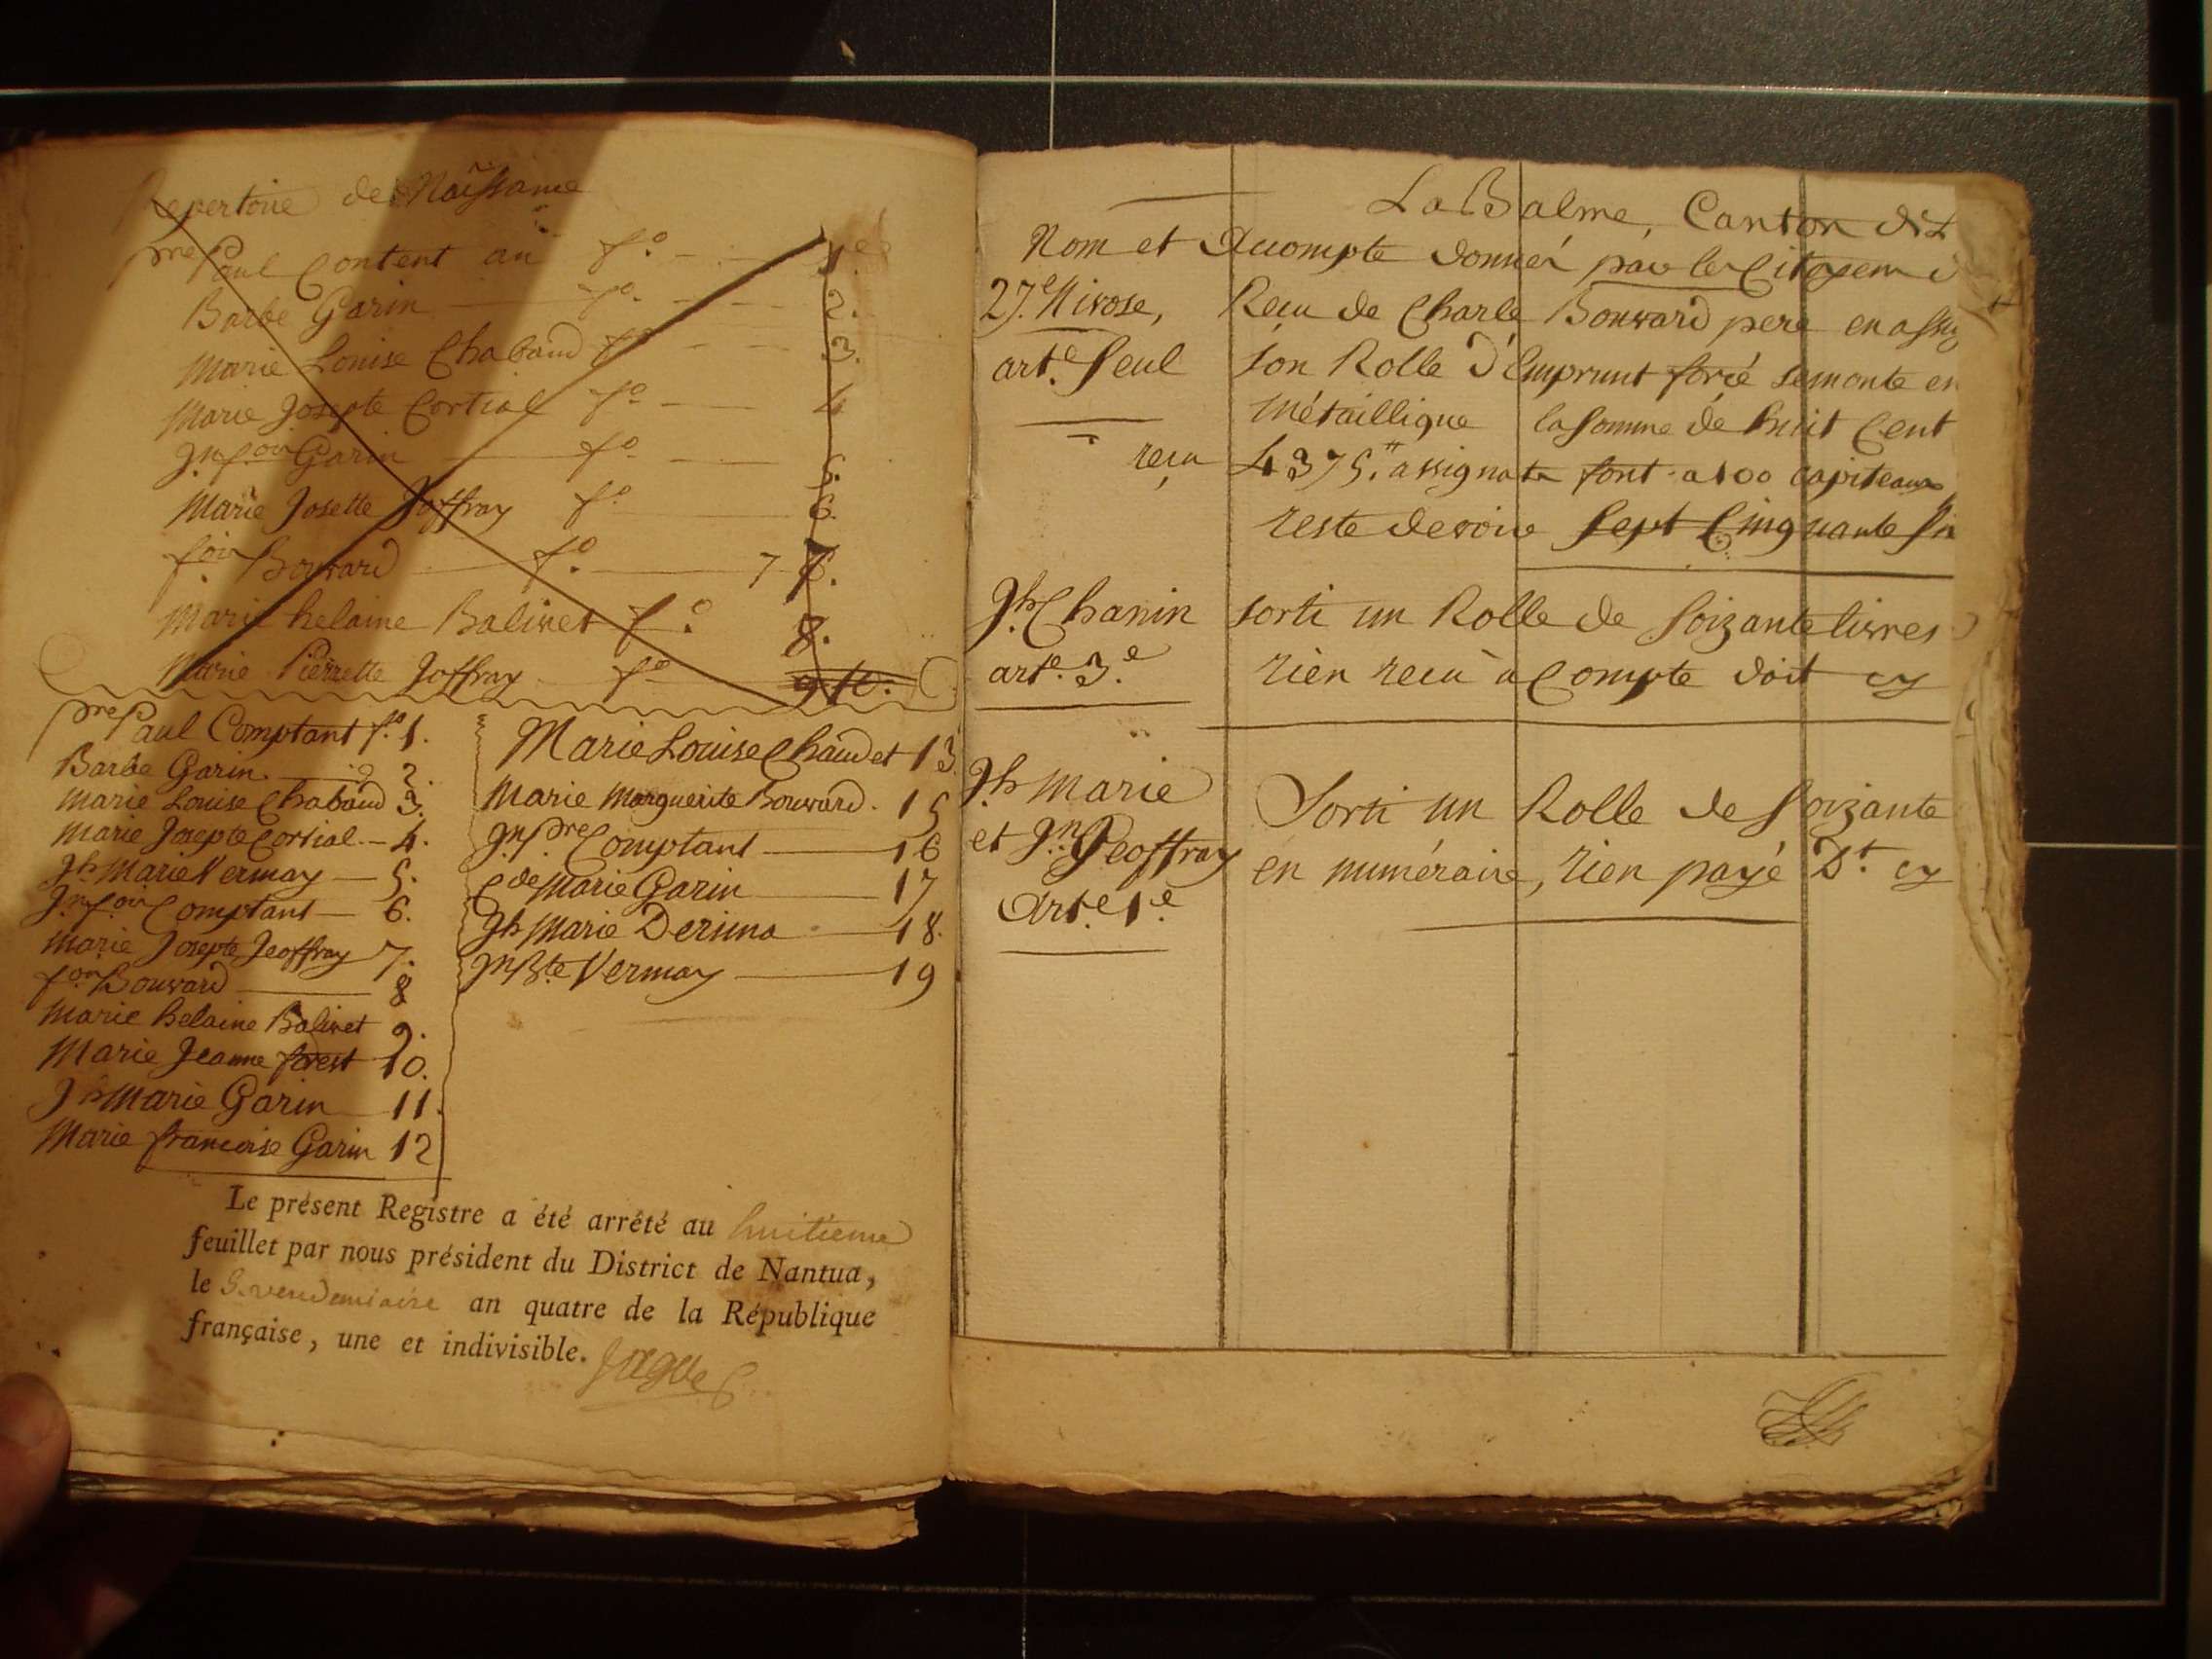 Repertoire de Naissance
pre Paul Content au fo. 1er
Barbe Garin fo. 2.
Marie Louise Chabaud fo 3.
Marie Josepte Cortial fo 4
Jn fois Garin fo 5.
Marie Josette Joffray fo 6.
fois Bouvard fo. 7 7.
Marie helaine Balivet fo. 8.
Marie Pierrette Joffray fo
pre Paul Comptant fo. 1.
Barbe Garin 2.
Marie Louise Chabaud 3.
Marie Josepte Cortial 4.
Jh Marie Vermay 5.
Jn fois Comptant 6.
Marie Josepte Jeoffray 7.
fois Bouvard 8
Marie helaine Balivet 9.
Marie Jeanne forest 10.
Jh Marie Garin 11.
Marie francoise Garin 12
Marie Louise Chaudet 13
Marie Marguerite Bouvard. 15
Jn pre Comptant 16
Cde Marie Garin 17
Jh Marie 18.
Jn Bte Vermay 19
Le présent Registre a été arrêté au huitieme
feuillet par nous président du District de Nantua,
le vendemiaire an quatre de la République
française, une et indivisible.
La Balme, Canton dit
Nom et Acompte donnés par les Citoyens
27e Nivose, Recu de Charle Bouvard pere en assig
arte. Seul son Rolle d'Emprunt forcé se monte en
métaillique la somme de huit Cent
reçu 4375.tt assignats font a 100 capiteaux
reste devoir Sept Cinquante
Jh. Chanin sorti un Rolle de soizante livres
arte. 3e. rien recu a Compte doit cy
Jh Marie Sorti un Rolle de soizante
et Jn. Jeoffray en numéraire, rien payé Dt. cy
Arte 1e.